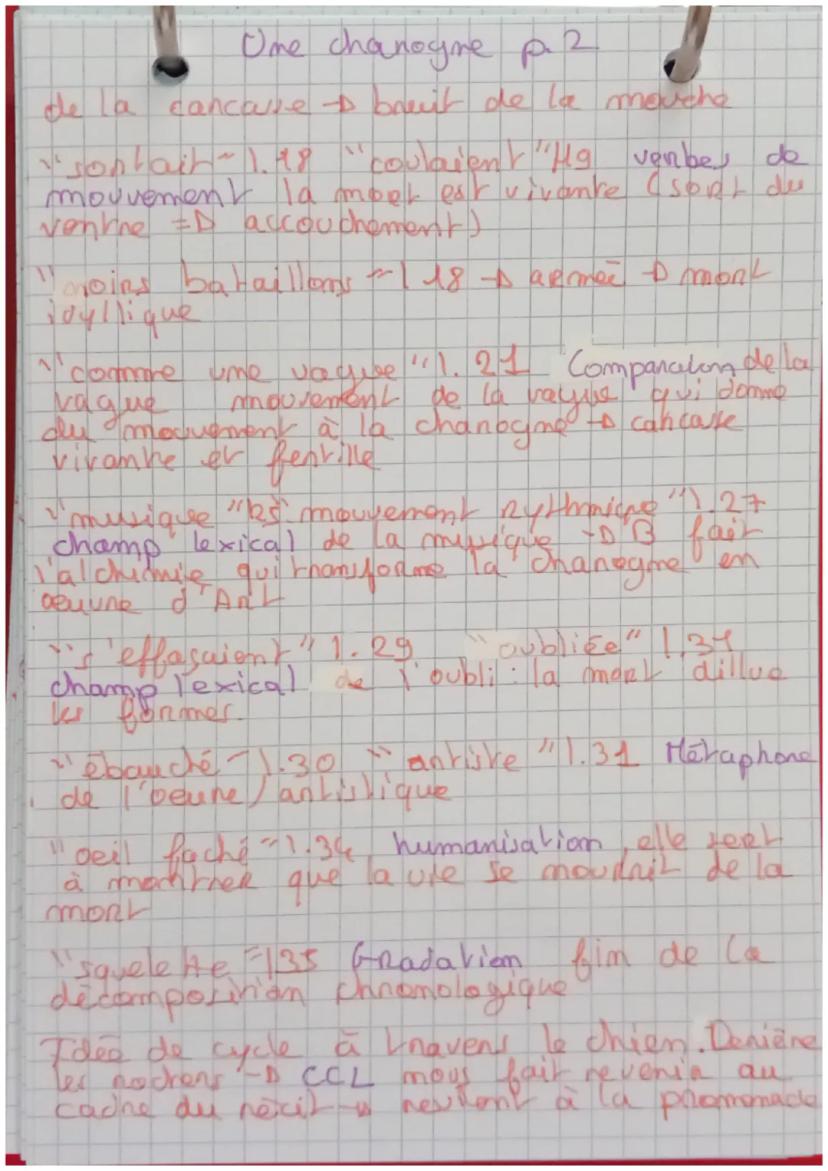 Une charogne p.2
de la carcasse → bruit de la mouche
"sortait" l.18 "coulaient" l19 verbes de
mouvement la mort est vivante (sort du
ventre => accouchement)
"noirs bataillons" l 18 → armée → mort
idyllique
"comme une vague" l. 21 Comparaison de la
vague mouvement de la vague qui donne
du mouvement à la charogne → carcasse
vivante et fertille
"musique" l25 "mouvement rythmique" l.27
champ lexical de la musique → B fait
l'alchimie qui transforme la charogne en
oeuvre d'Art
"s'effaçaient" l.29 "oubliée" l.31
champ lexical de l'oubli : la mort dillue
les formes.
"ébauche" l.30 "artiste" l.31 Métaphore
de l'oeuvre artistique
"oeil faché" l.34 humanisation, elle sert
à montrer que la vie se nourrit de la
mort
"squelette" l35 Gradation fin de la
décomposition chronologique
Idée de cycle à travers le chien. Derière
les rochers → CCL nous fait revenir au
cadre du récit → revient à la promenade